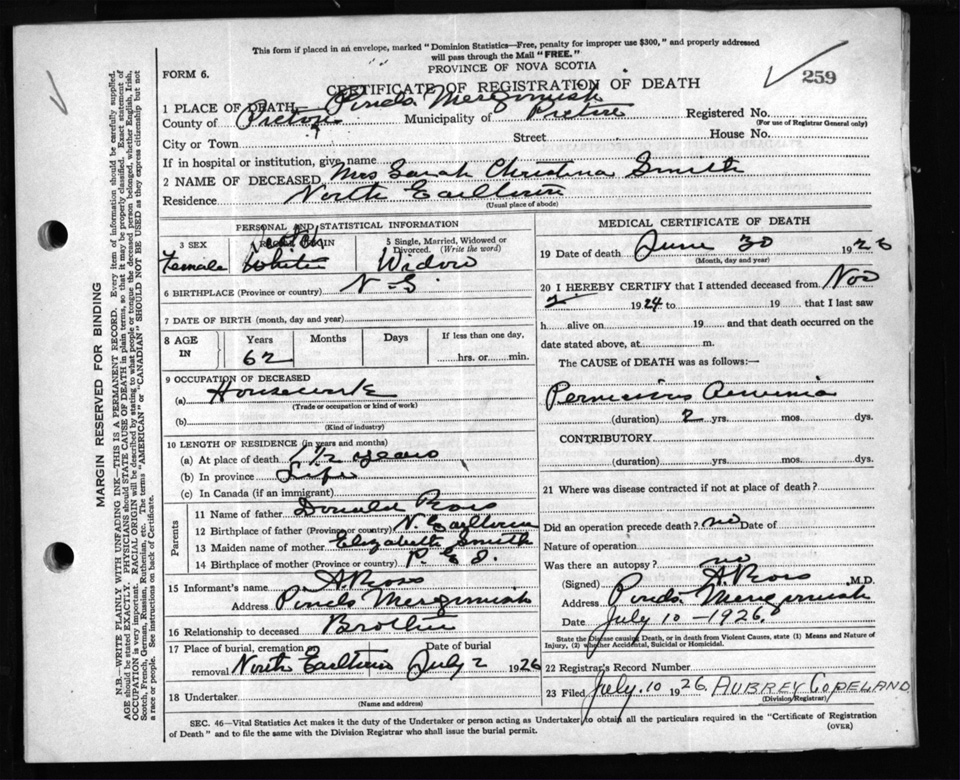 This form if placed in an envelope, marked "Dominion Statistics—Free, penalty for improper use $300," and properly addressed
will pass through the Mail "FREE."
PROVINCE OF NOVA SCOTIA
FORM 6.
CERTIFICATE OF REGISTRATION OF DEATH
259
1 PLACE OF DEATH, Merigomish
County of Pictou Municipality of Pictou Registered No.
(For use of Registrar General only)
City or Town Street House No.
If in hospital or institution, give name
2 NAME OF DECEASED Mrs Sarah Christina Smith
Residence North Earltown
(Usual place of abode)
PERSONAL AND STATISTICAL INFORMATION
3 SEX
Female White
5 Single, Married, Widowed or Divorced. (Write the word)
Widow
6 BIRTHPLACE (Province or country) N-S
7 DATE OF BIRTH (month, day and year)
8 AGE IN Years Months Days If less than one day,
62 hrs. or min.
9 OCCUPATION OF DECEASED
(a) Housework
(Trade or occupation or kind of work)
(b)
(Kind of industry)
10 LENGTH OF RESIDENCE (in years and months)
(a) At place of death 1 1/2 years
(b) In province Life
(c) In Canada (if an immigrant)
Parents
11 Name of father Donald Ross
12 Birthplace of father (Province or country) N. Earltown
13 Maiden name of mother Elizabeth Smith
14 Birthplace of mother (Province or country) P. E. I.
15 Informant's name A Ross
Address Merigomish
16 Relationship to deceased Brother
17 Place of burial, cremation or removal North Earltown Date of burial July 2 1926
18 Undertaker
(Name and address)
MEDICAL CERTIFICATE OF DEATH
19 Date of death June 30 1926
(Month, day and year)
20 I HEREBY CERTIFY that I attended deceased from Nov
2 1924 to 19 that I last saw
h alive on 19 and that death occurred on
date stated above, at m.
The CAUSE of DEATH was as follows:—
Pernicious anemia
(duration) 2 yrs. mos. dys.
CONTRIBUTORY
(duration) yrs. mos. dys.
21 Where was disease contracted if not at place of death?
Did an operation precede death? no Date of
Nature of operation
Was there an autopsy? no
(Signed) A Ross M.D.
Address Merigomish
Date July 10 - 1926
State the Disease causing Death, or in death from Violent Causes, state (1) Means and Nature of Injury, (2) whether Accidental, Suicidal or Homicidal.
22 Registrar's Record Number
23 Filed July. 10 1926. AUBREY COPELAND
(Division Registrar)
SEC. 46—Vital Statistics Act makes it the duty of the Undertaker or person acting as Undertaker, to obtain all the particulars required in the "Certificate of Registration
of Death" and to file the same with the Division Registrar who shall issue the burial permit.
(OVER)
MARGIN RESERVED FOR BINDING
N.B.—WRITE PLAINLY WITH UNFADING INK—THIS IS A PERMANENT RECORD. Every item of information should be carefully supplied.
AGE should be stated EXACTLY. PHYSICIANS should STATE CAUSE OF DEATH in plain terms, so that it may be properly classified. Exact statement of
OCCUPATION is very important. RACIAL ORIGIN will be described by stating to what people or tongue the deceased person belonged, whether English, Irish,
Scotch, French, German, Russian, Ruthenian, etc. The terms "AMERICAN" or "CANADIAN" SHOULD NOT BE USED as they express citizenship but not
a race or people. See instructions on back of Certificate.